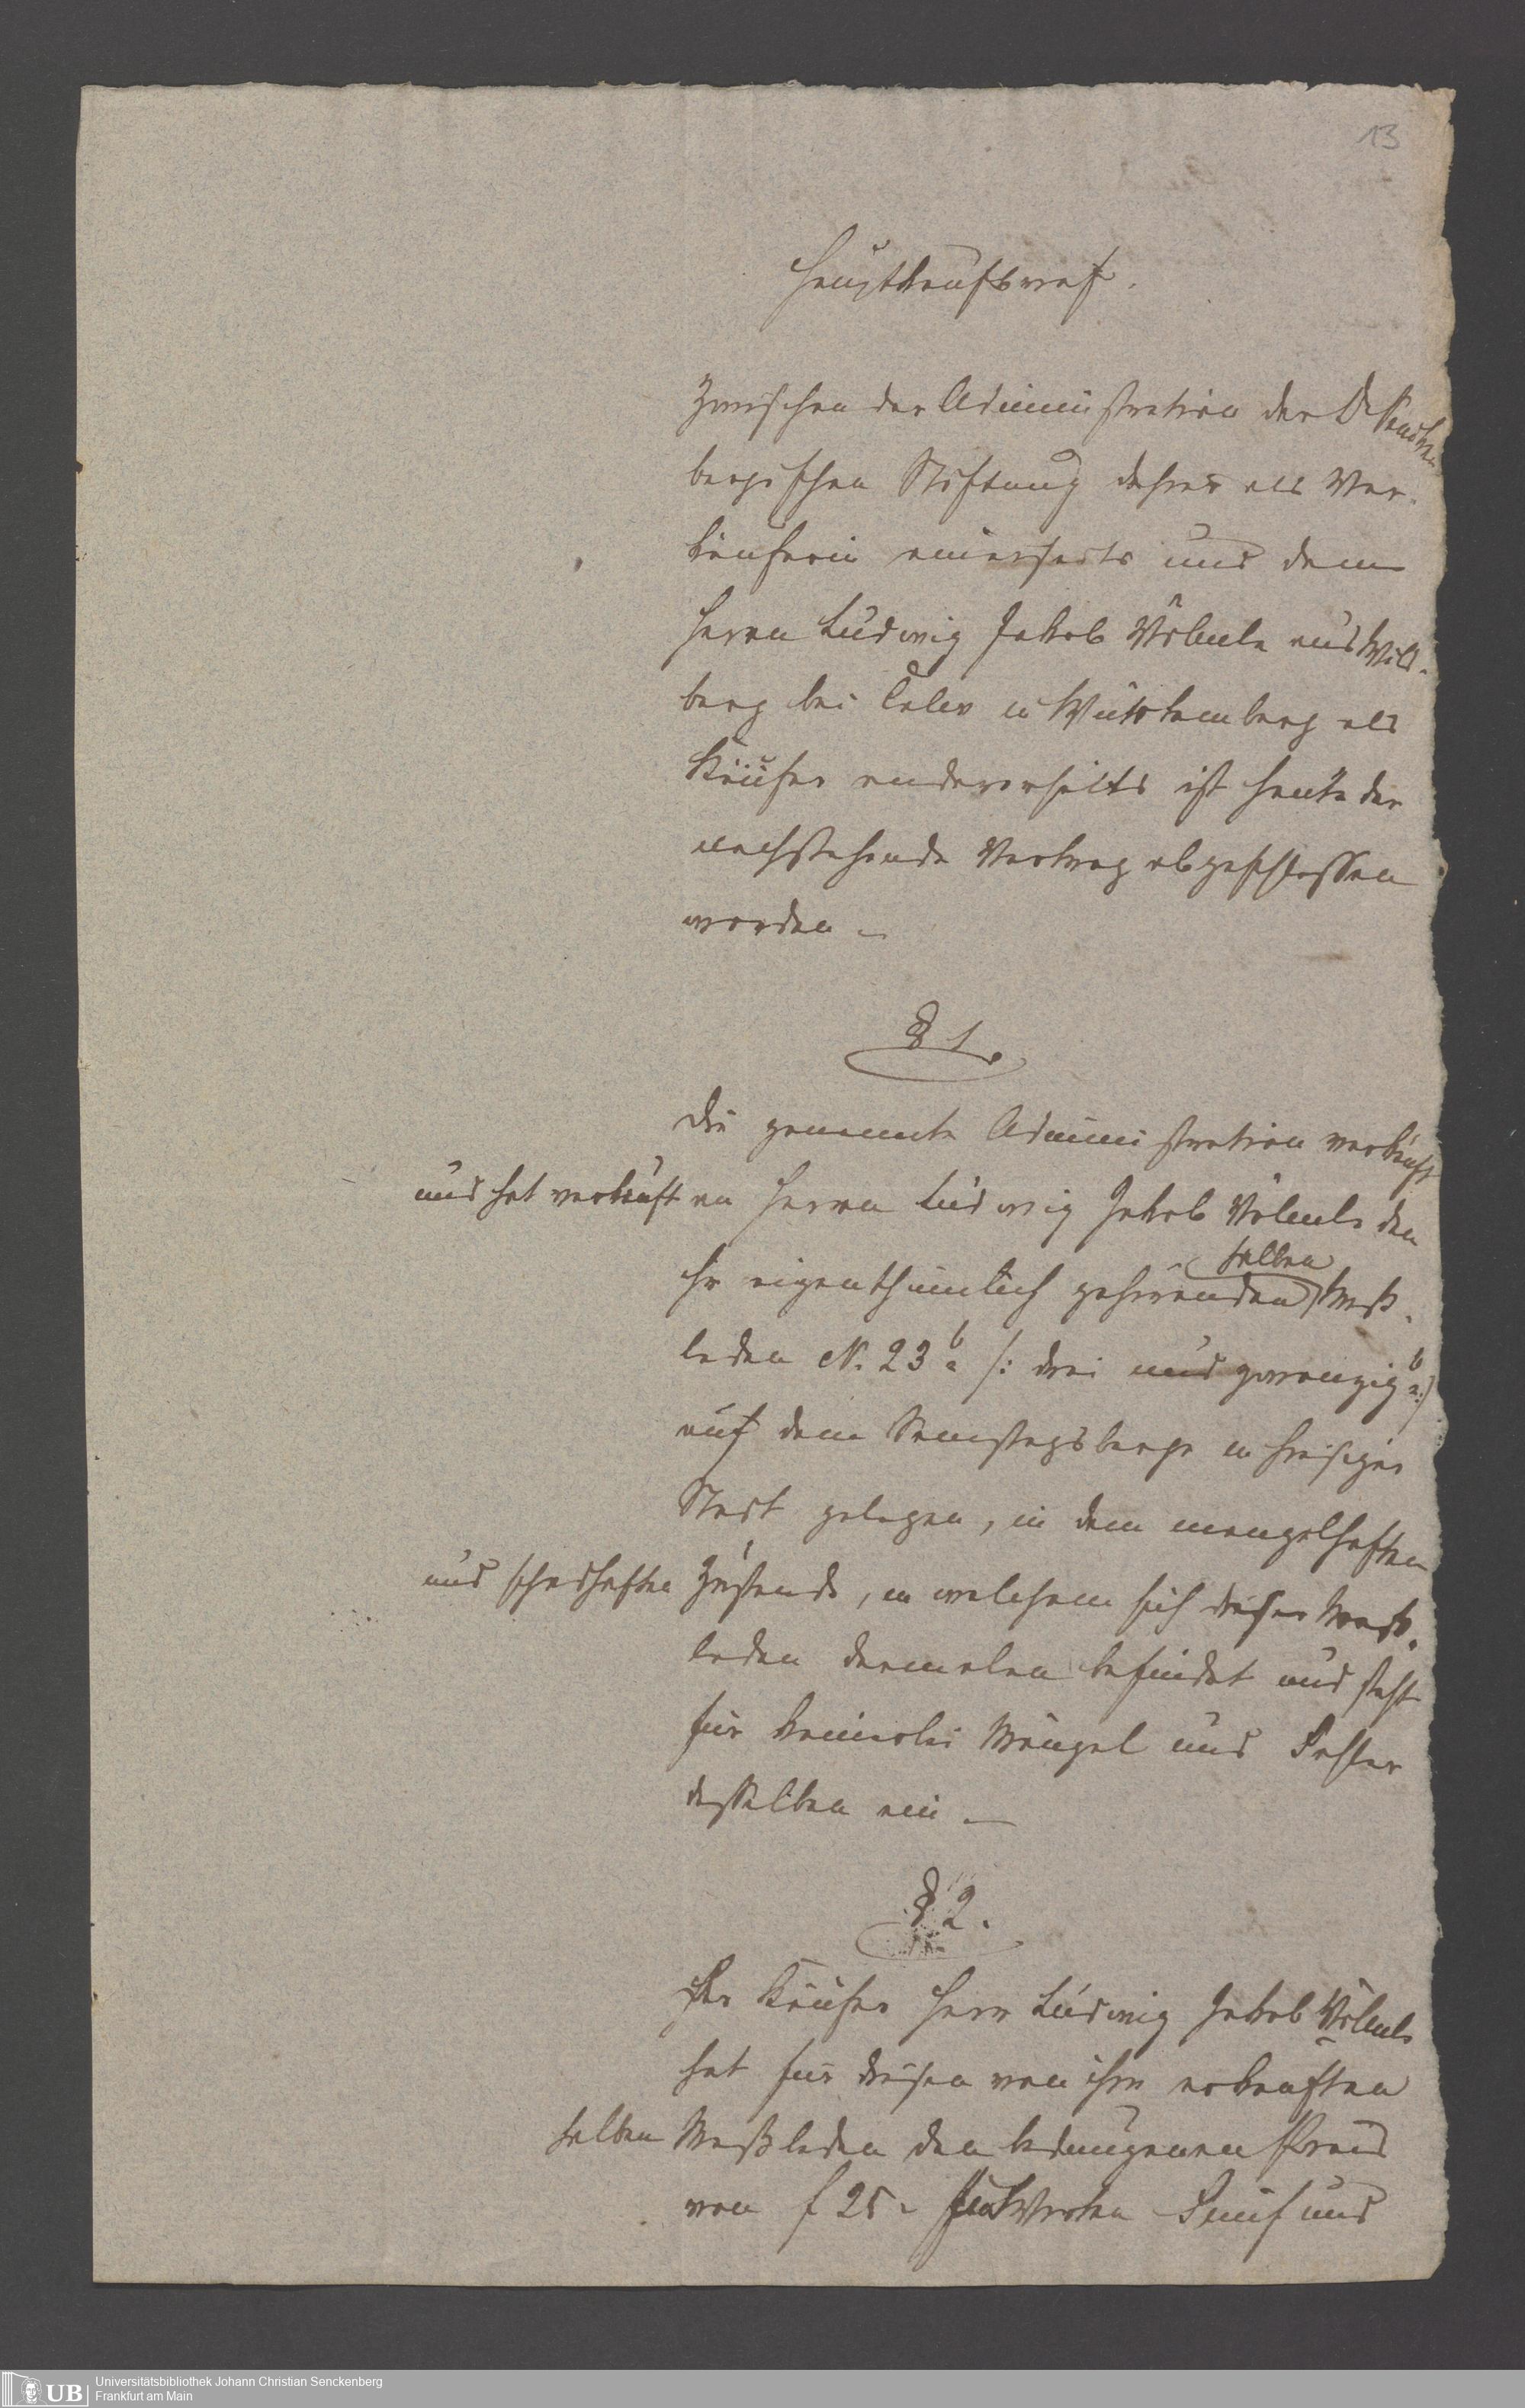 13
Hauptkaufbrief.
Zwischen der Administration der Dr Sencken
bergischen Stiftung dahier als Ver-
käuferin einerseits und dem
Herrn Ludwig Jakob Völmle aus Wild-
berg bei Calw in Württemberg als
Käufer andererseits ist heute der
nachstehende Vertrag abgeschlossen
worden –
§ 1.
Die genannte Administration verkauft
und hat verkauft an Herrn Ludwig Jakob Völmle den
ihr eigenthümlich gehörenden halben Meß-
laden N. 23 b /: drei und zwanzig b :/
auf dem Samstagsberge in hiesiger
Stadt gelegen, in dem mangelhaften
und schadhaften Zustande, in welchem sich dieser Meß-
laden dermalen befindet und steht
für keinerlei Mängel und Fehler
desselben ein –
§ 2.
Der Käufer Herr Ludwig Jakob Völmle
hat für diesen von ihm erkauften
halben Meßladen den bedungenen Preis
von f 25 – Worten Fünf und
UB
Universitätsbibliothek Johann Christian Senckenberg
Frankfurt am Main